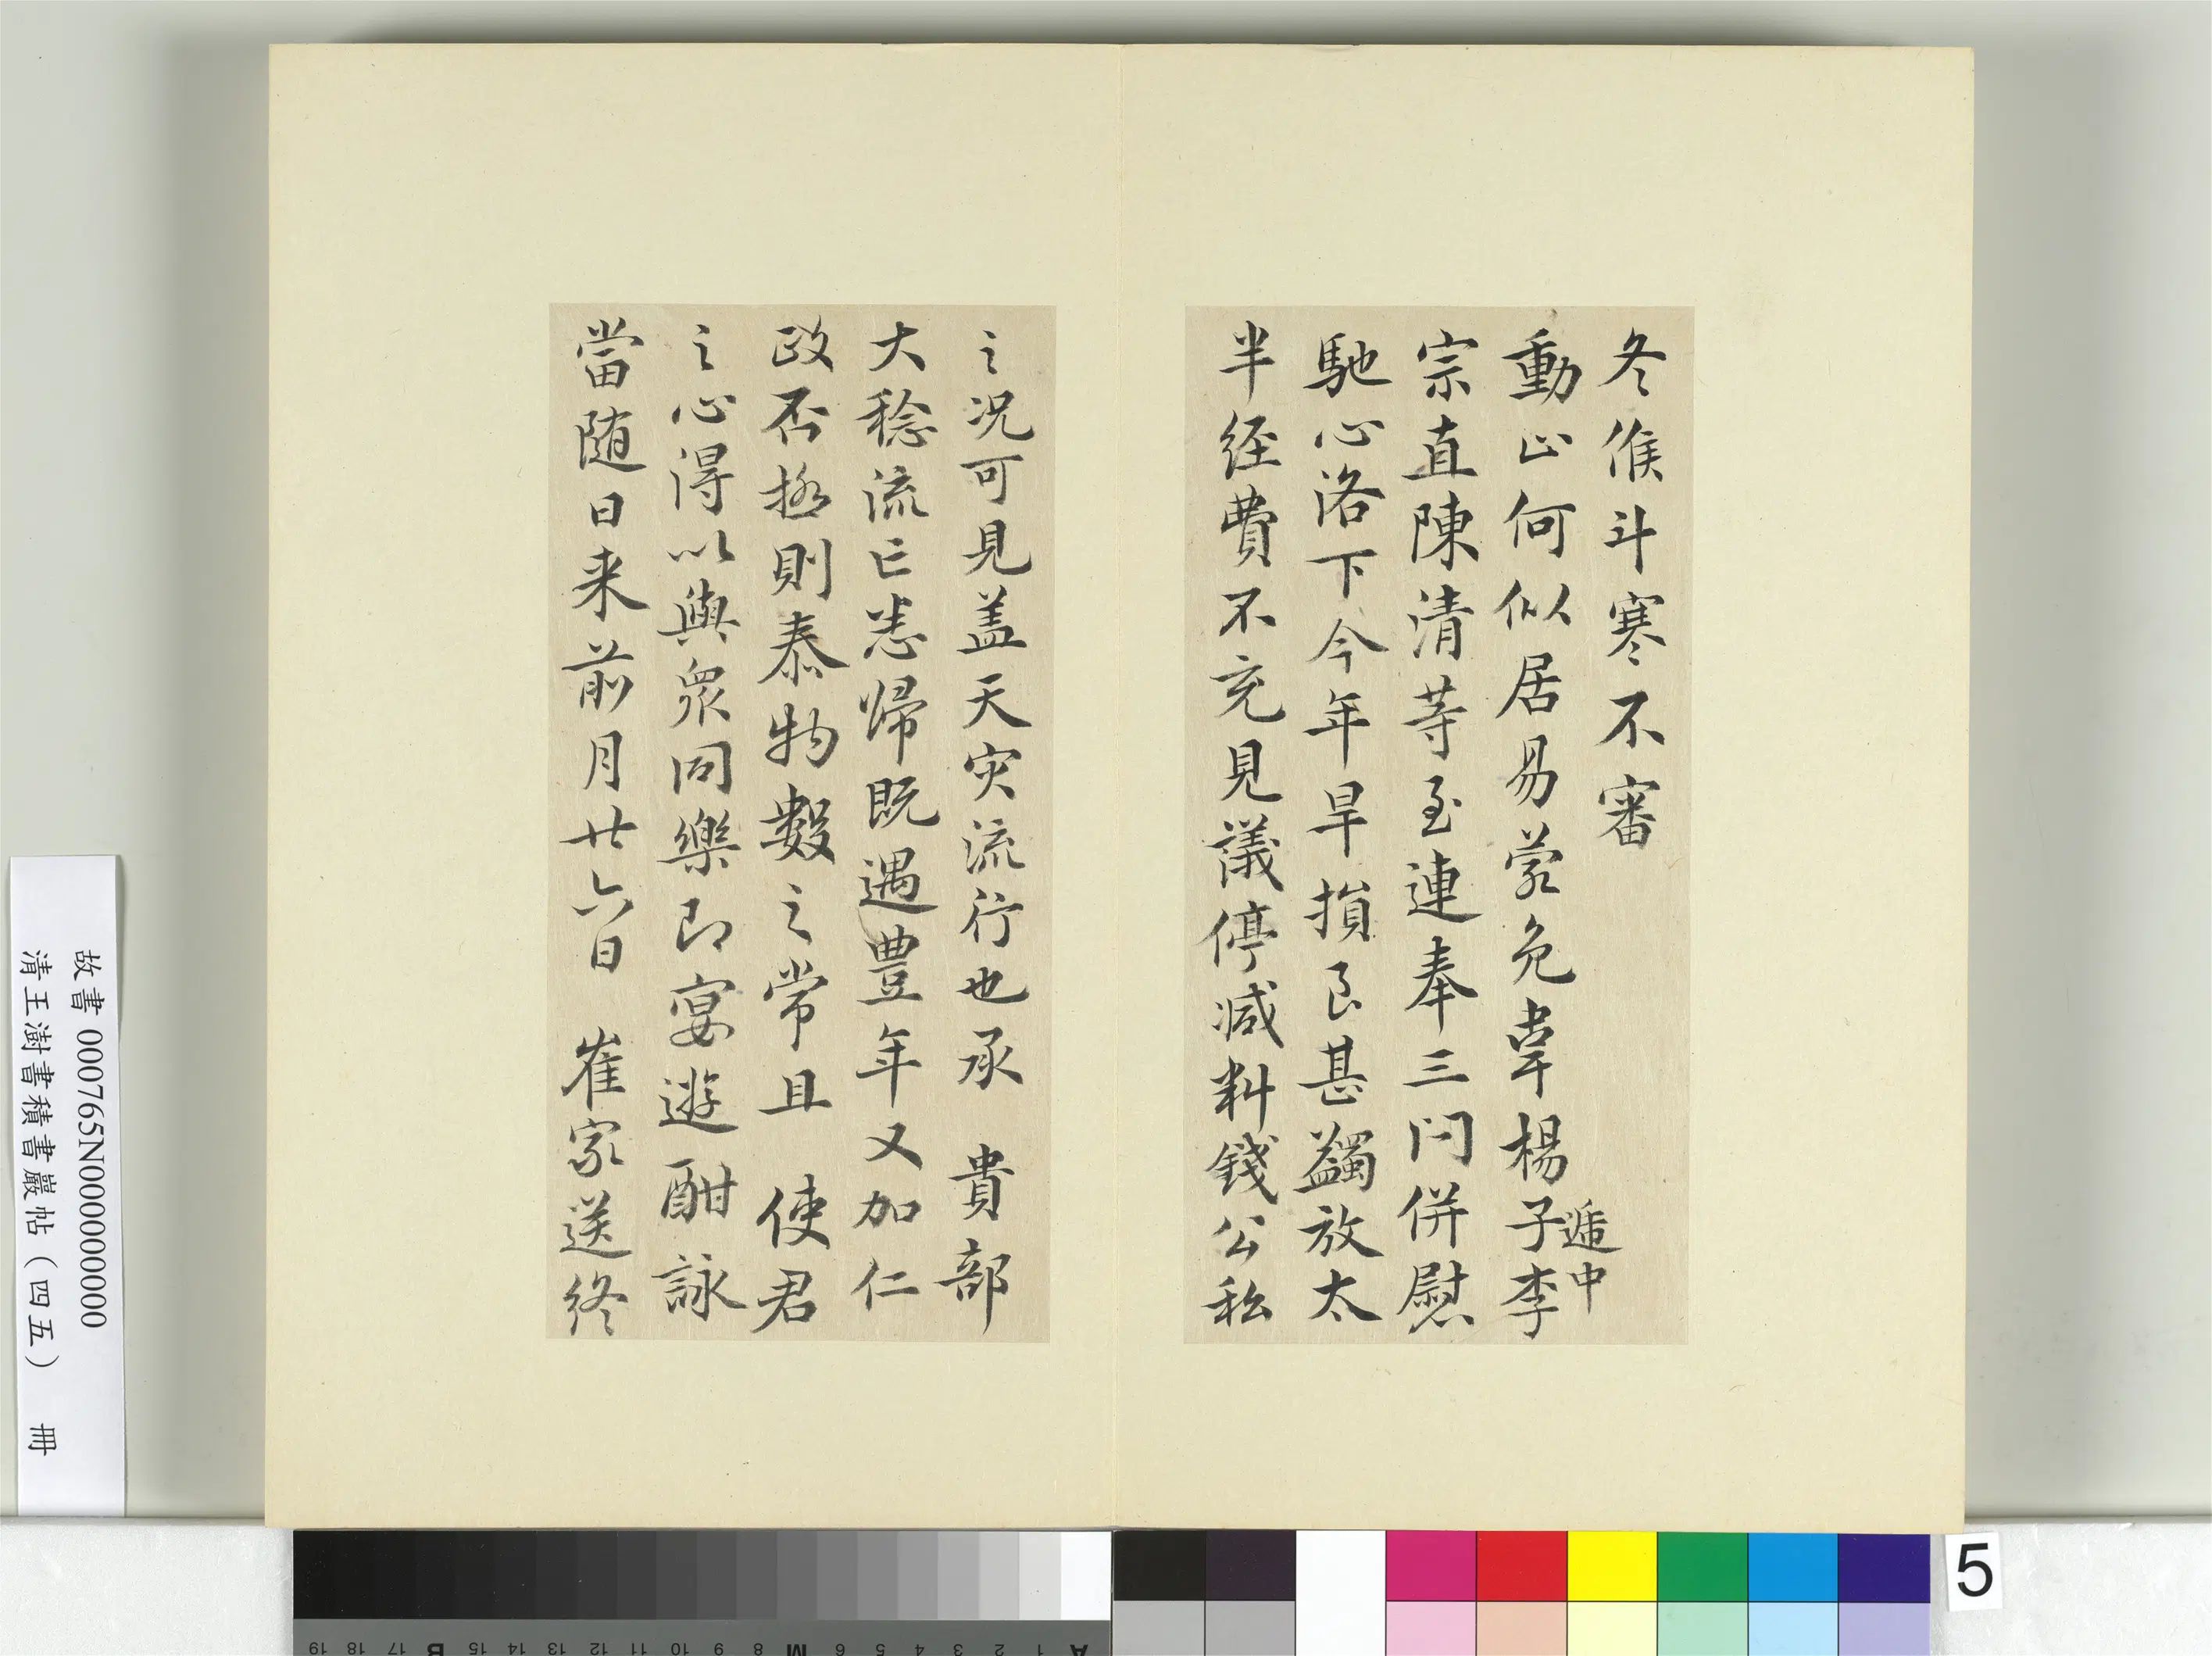 冬候斗寒不審
動止何似居易蒙免韋楊子遞中李
宗直陳清等至連奉三問併慰
馳心洛下今年旱損良甚蠲放太
半經費不充見議停減料錢公私
之况可見盖天灾流行也承 貴部
大稔流亡悉歸既遇豊年又加仁
政否極則泰物數之常且 使君
之心得以與衆同樂即宴遊酣詠
當随日来前月廿六日 崔家送終
故書 000765N000000000
清王澍書積書巖帖（四五） 冊
5
A 1 2 3 4 5 6 M 8 9 10 11 12 13 14 15 B 17 18 19